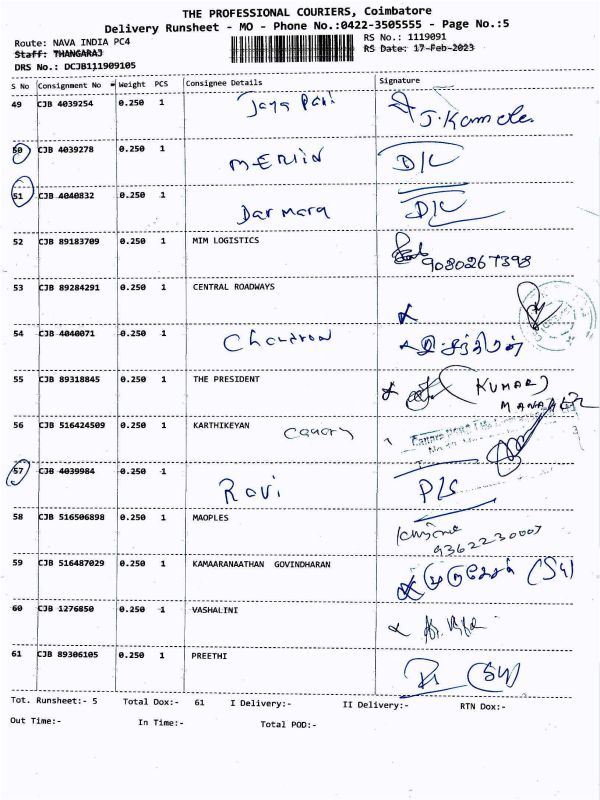 THE PROFESSIONAL COURIERS, Coimbatore
Delivery Runsheet - MO - Phone No.:0422-3505555 - Page No.:5
Route: NAVA INDIA PC4 RS No.: 1119091
Staff: THANGARAJ RS Date: 17-Feb-2023
DRS No.: DCJB111909105
S No Consignment No # Weight PCS Consignee Details Signature
49 CJB 4039254 0.250 1 Jaya Pari J. Kamala
50 CJB 4039278 0.250 1 MERLIN D/C
51 CJB 4040832 0.250 1 Darmara D/C
52 CJB 89183709 0.250 1 MIM LOGISTICS 9080267398
53 CJB 89284291 0.250 1 CENTRAL ROADWAYS
54 CJB 4040071 0.250 1
55 CJB 89318845 0.250 1 THE PRESIDENT KUMAR J
MANAGER
56 CJB 516424509 0.250 1 KARTHIKEYAN Canary
57 CJB 4039984 0.250 1 Ravi P/S
58 CJB 516506898 0.250 1 MAOPLES
9362230007
59 CJB 516487029 0.250 1 KAMAARANAATHAN GOVINDHARAN (Sy)
60 CJB 1276850 0.250 1 VASHALINI
61 CJB 89306105 0.250 1 PREETHI (Sy)
Tot. Runsheet:- 5 Total Dox:- 61 I Delivery:- II Delivery:- RTN Dox:-
Out Time:- In Time:- Total POD:-